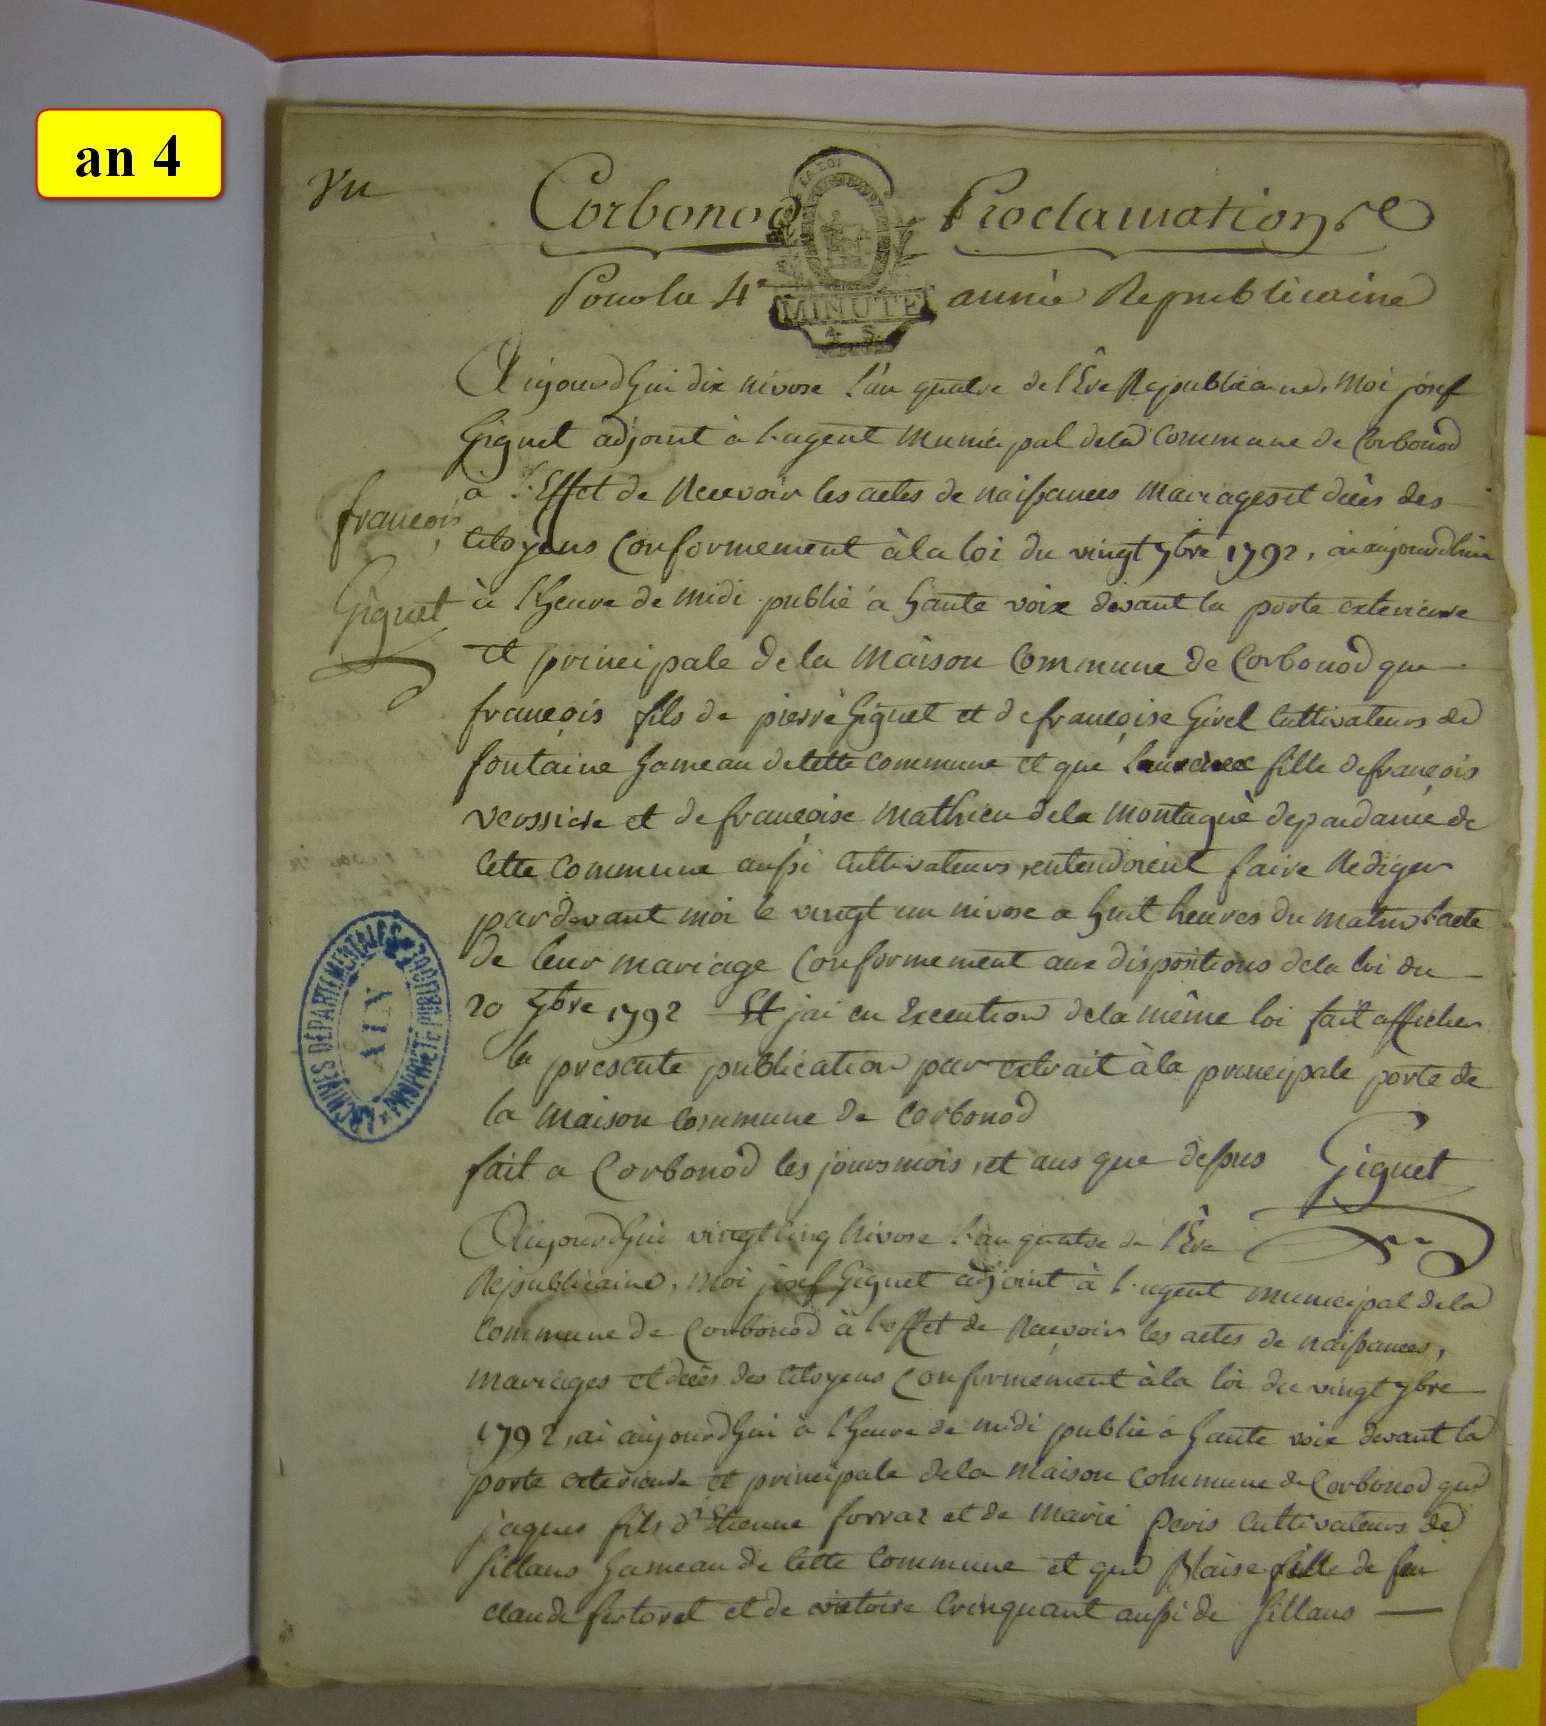 an 4
Vu
Corbonod Proclamations
LA LOI
MINUTE
4 S.
Pour la 4e année Republicaine
Aujourd'hui dix nivose l'an quatre de l'Ere Republicaine, Moi josef
Giguet adjoint à l'agent Municipal de la Commune de Corbonod
à l'Effet de Recevoir les actes de naissances Mariages et décès des
françois
Giguet
Citoyens Conformement à la loi du vingt 7bre 1792, ai aujourdhui
à l'heure de midi publié a haute voix devant la porte exterieure
et principale de la Maison Commune de Corbonod que
françois fils de pierre Giguet et de françoise Girel Cultivateurs de
fontaine hameau de Cette Commune et que fille de françois
et de françoise Mathieu de la Montagne dependance de
Cette Commune aussi Cultivateurs, entendoient faire Rediger
pardevant moi le vingt un nivose a huit heures du matin l'acte
de leur mariage Conformement aux dispositions de la loi du
20 7bre 1792 Et jai en Execution de la même loi fait afficher
la presente publication par extrait à la principale porte de
la Maison Commune de Corbonod
fait a Corbonod les jours mois, et ans que dessus Giguet
ARCHIVES DÉPARTEMENTALES
AIN
PROPRIÉTÉ PUBLIQUE
Aujourd'hui vingt cinq Nivose l'an quatre de l'Ere
Republicaine, Moi josef Giguet adjoint à l'agent Municipal de la
Commune de Corbonod à l'effet de Recevoir les actes de naissances,
Mariages et décès des Citoyens Conformément à la loi du vingt 7bre
1792, ai aujourd'hui à l'heure de midi publié a haute voix devant la
porte exterieure et principale de la Maison Commune de Corbonod que
jaques fils d'Etienne forraz et de Marie Peris Cultivateurs de
Sillans hameau de Cette Commune et que Blaise fille de feu
claude fertoret et de victoire Crinquant aussi de Sillans